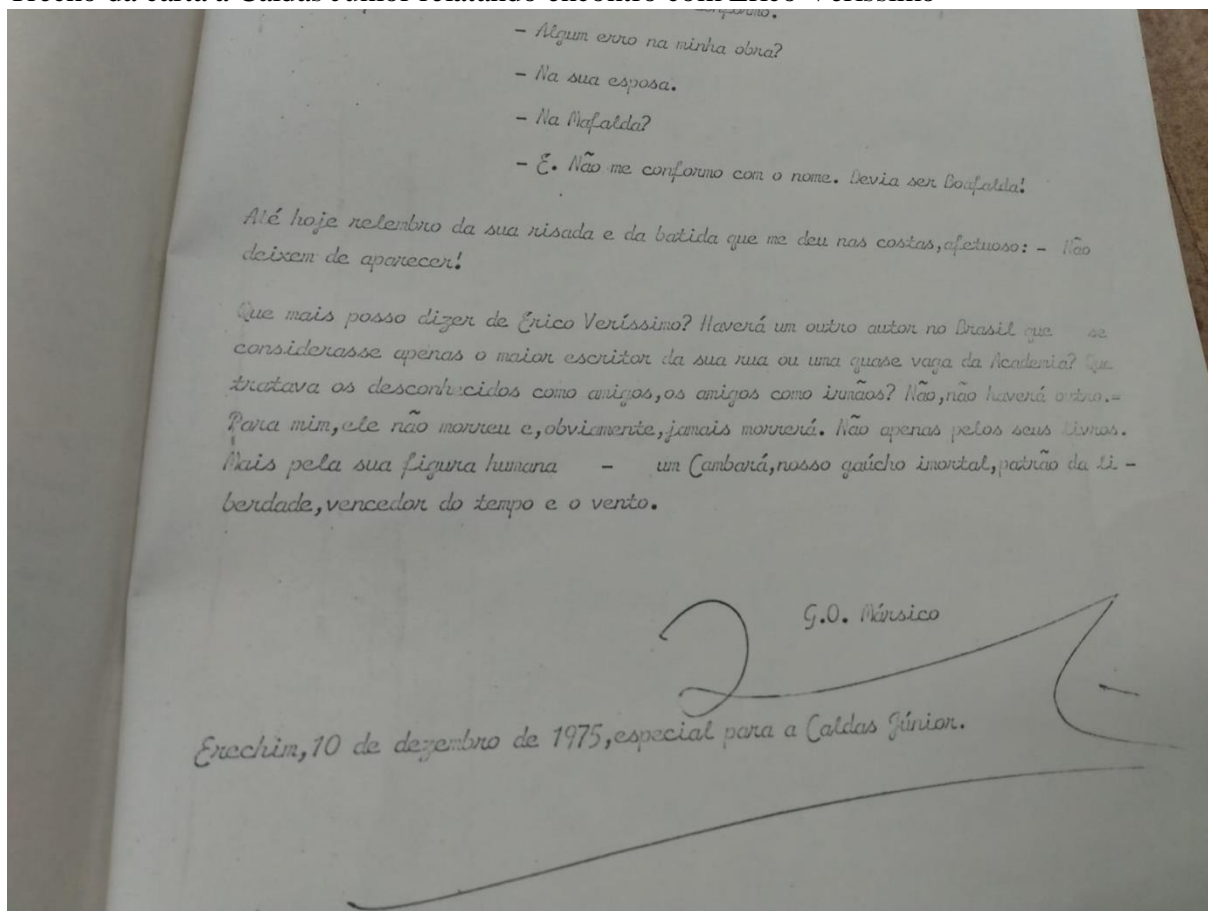 Trecho da carta a Caldas Júnior relatando encontro com Erico Veríssimo
conformo.
- Algum erro na minha obra?
- Na sua esposa.
- Na Mafalda?
- É. Não me conformo com o nome. Devia ser Boafalda!
Até hoje relembro da sua risada e da batida que me deu nas costas,afetuoso: - Não
deixem de aparecer!
Que mais posso dizer de Érico Veríssimo? Haverá um outro autor no Brasil que se
considerasse apenas o maior escritor da sua rua ou uma quase vaga da Academia? Que
tratava os desconhecidos como amigos,os amigos como irmãos? Não,não haverá outro.=
Para mim,ele não morreu e,obviamente,jamais morrerá. Não apenas pelos seus livros.
Mais pela sua figura humana - um Cambará,nosso gaúcho imortal,patrão da li-
berdade,vencedor do tempo e o vento.
G.O. Mársico
Erechim,10 de dezembro de 1975,especial para a Caldas Júnior.